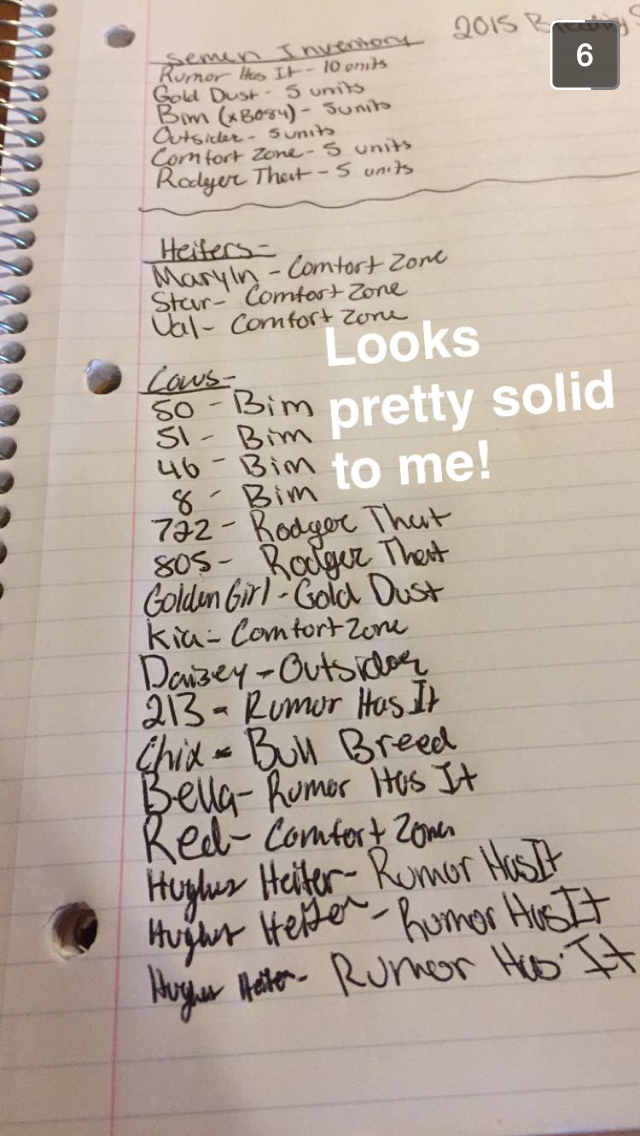 2015
6
Semen Inventory
Rumor Has It - 10 units
Gold Dust - 5 units
Bim (xB084) - 5 units
Outsider - 5 units
Comfort Zone - 5 units
Rodger That - 5 units
Heifers -
Maryln - Comfort Zone
Star - Comfort Zone
Val - Comfort Zone
Looks
pretty solid
to me!
Cows -
50 - Bim
51 - Bim
46 - Bim
8 - Bim
722 - Rodger That
805 - Rodger That
Golden Girl - Gold Dust
Kia - Comfort Zone
Daizey - Outsider
213 - Rumor Has It
Chix - Bull Breed
Bella - Rumor Has It
Red - Comfort Zone
Hughes Heifer - Rumor Has It
Hughes Heifer - Rumor Has It
Hughes Heifer - Rumor Has It